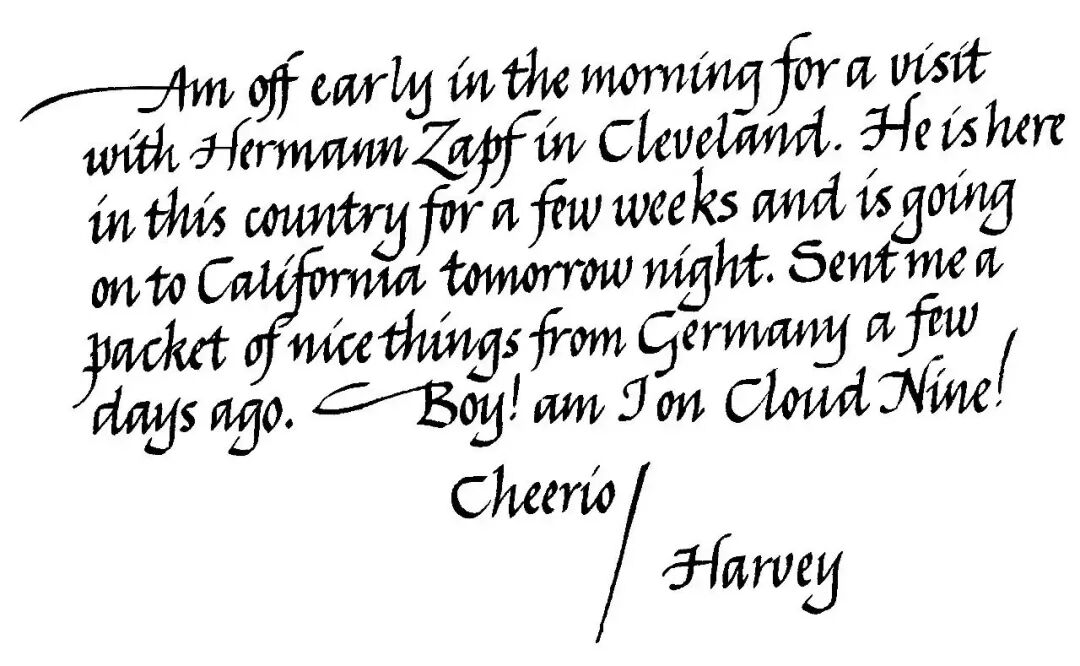 Am off early in the morning for a visit
with Hermann Zapf in Cleveland. He is here
in this country for a few weeks and is going
on to California tomorrow night. Sent me a
packet of nice things from Germany a few
days ago. Boy! am I on Cloud Nine!
Cheerio
Harvey